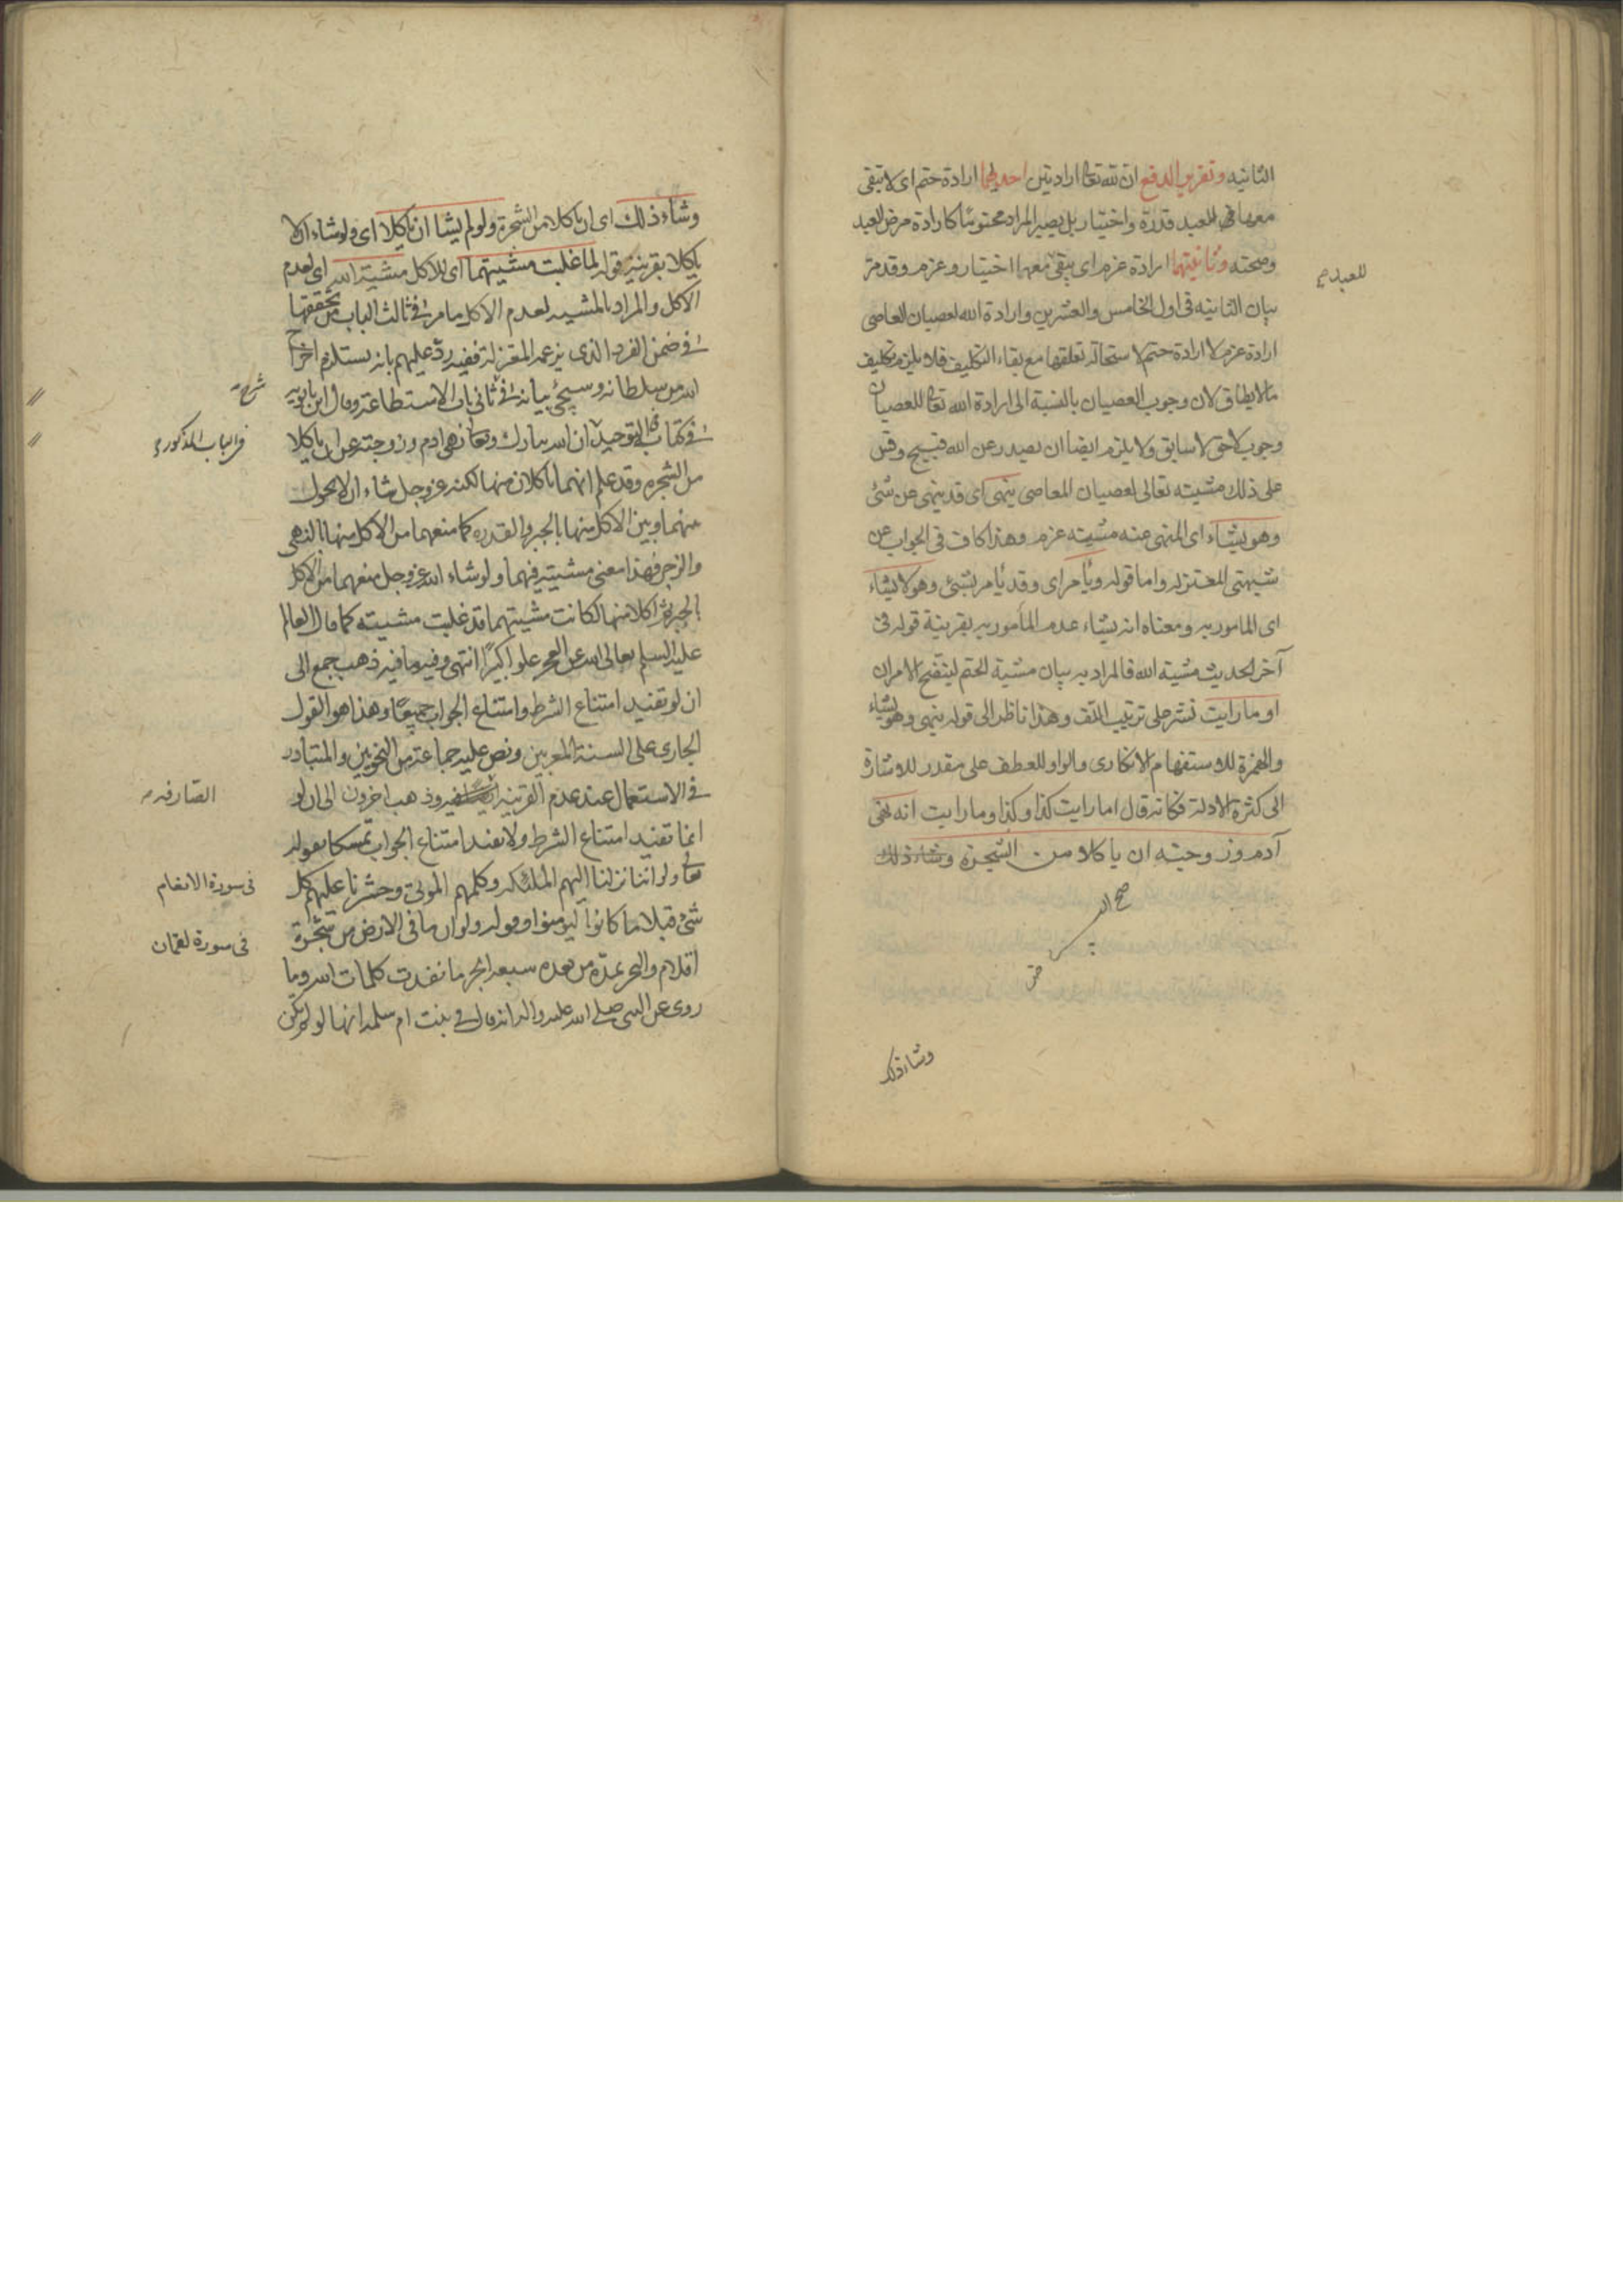 الثانيه وتقرير الدفع ان لله تعالى ارادتين احديهما ارادة حتم اى لا تبقى
معها للعبد قدرة واختيار بل يصير المراد محتوما كارادة مرض العبد
وصحته وثانيتهما ارادة عزم اى يبقى معها اختيار وعزم وقد مر
للعبد
بيان الثانيه فى اول الخامس والعشرين وارادة الله لعصيان العاصى
ارادة عزم لا ارادة حتم لاستحالة تعلقها مع بقاء التكليف فلا يلزم تكليف
ما لا يطاق لان وجوب العصيان بالنسبة الى ارادة الله تعالى للعصيان
وجوب لاحق لا سابق ولا يلزم ايضا ان يصدر عن الله قبيح وقس
على ذلك مشيته تعالى لعصيان المعاصى ينهى اى قد ينهى عن شئ
وهو يشاء اى المنهى عنه مشيته عزم وهذا كاف فى الجواب عن
شبهتى المعتزله واما قوله ويأمر اى وقد يأمر بشئ وهو لا يشاء
اى المامور به ومعناه انه يشاء عدم المأمور به بقرينة قوله فى
آخر الحديث مشية الله فالمراد به بيان مشية الحتم ليتضح الامران
او ما رايت نشر على ترتيب اللف وهذا ناظر الى قوله ينهى وهو يشاء
والهمزة للاستفهام الانكارى والواو للعطف على مقدر للاشارة
الى كثرة الادلة فكانه قال اما رايت كذا وكذا وما رايت انه نهى
آدم وزوجته ان ياكلا من الشجرة وشاء ذلك
وشاء ذلك
وشاء ذلك اى ان ياكلا من الشجرة ولو لم يشا ان ياكلا اى ولو شاء ان لا
ياكلا بقرينة قوله لما غلبت مشيتهما اى للاكل مشية الله اى لعدم
الاكل والمراد بالمشيه لعدم الاكل ما مر فى ثالث الباب من تحققها
فى ضمن الفرد الذى يزعمه المعتزلة ففيه رد عليهم بانه يستلزم اخراج
الله من سلطانه وسيجئ بيانه فى ثانى باب الاستطاعة وقال ابن بابويه
شرح
فى كتاب التوحيد ان الله تبارك وتعالى نهى ادم وزوجته عن ان ياكلا
فى الباب المذكور
من الشجره وقد علم انهما ياكلان منها لكنه عز وجل شاء ان لا يحول
بينهما وبين الاكل منها بالجبر والقدره كما منعهما من الاكل منها بالنهى
والزجر فهذا معنى مشيته فيهما ولو شاء الله عز وجل منعهما من الاكل
بالجبر ثم اكلا منها لكانت مشيتهما قد غلبت مشيته كما قال العالم
عليه السلم تعالى الله عن العجز علوا كبيرا انتهى وفيه ما فيه ذهب جمع الى
ان لو تفيد امتناع الشرط وامتناع الجواب جميعا وهذا هو القول
الجارى على السنة المعربين ونص عليه جماعة من النحويين والمتبادر
فى الاستعمال عند عدم القرينه وذهب اخرون الى ان لو
الصارفه
انما تفيد امتناع الشرط ولا تفيد امتناع الجواب تمسكا بقوله
تعالى ولو اننا نزلنا اليهم الملئكه وكلمهم الموتى وحشرنا عليهم كل
فى سورة الانعام
شئ قبلا ما كانوا ليومنوا وقوله ولو ان ما فى الارض من شجرة
فى سورة لقمان
اقلام والبحر يمده من بعده سبعه ابحر ما نفدت كلمات الله وبما
روى عن النبى صلى الله عليه واله انه قال فى بنت ام سلمه انها لو لم تكن